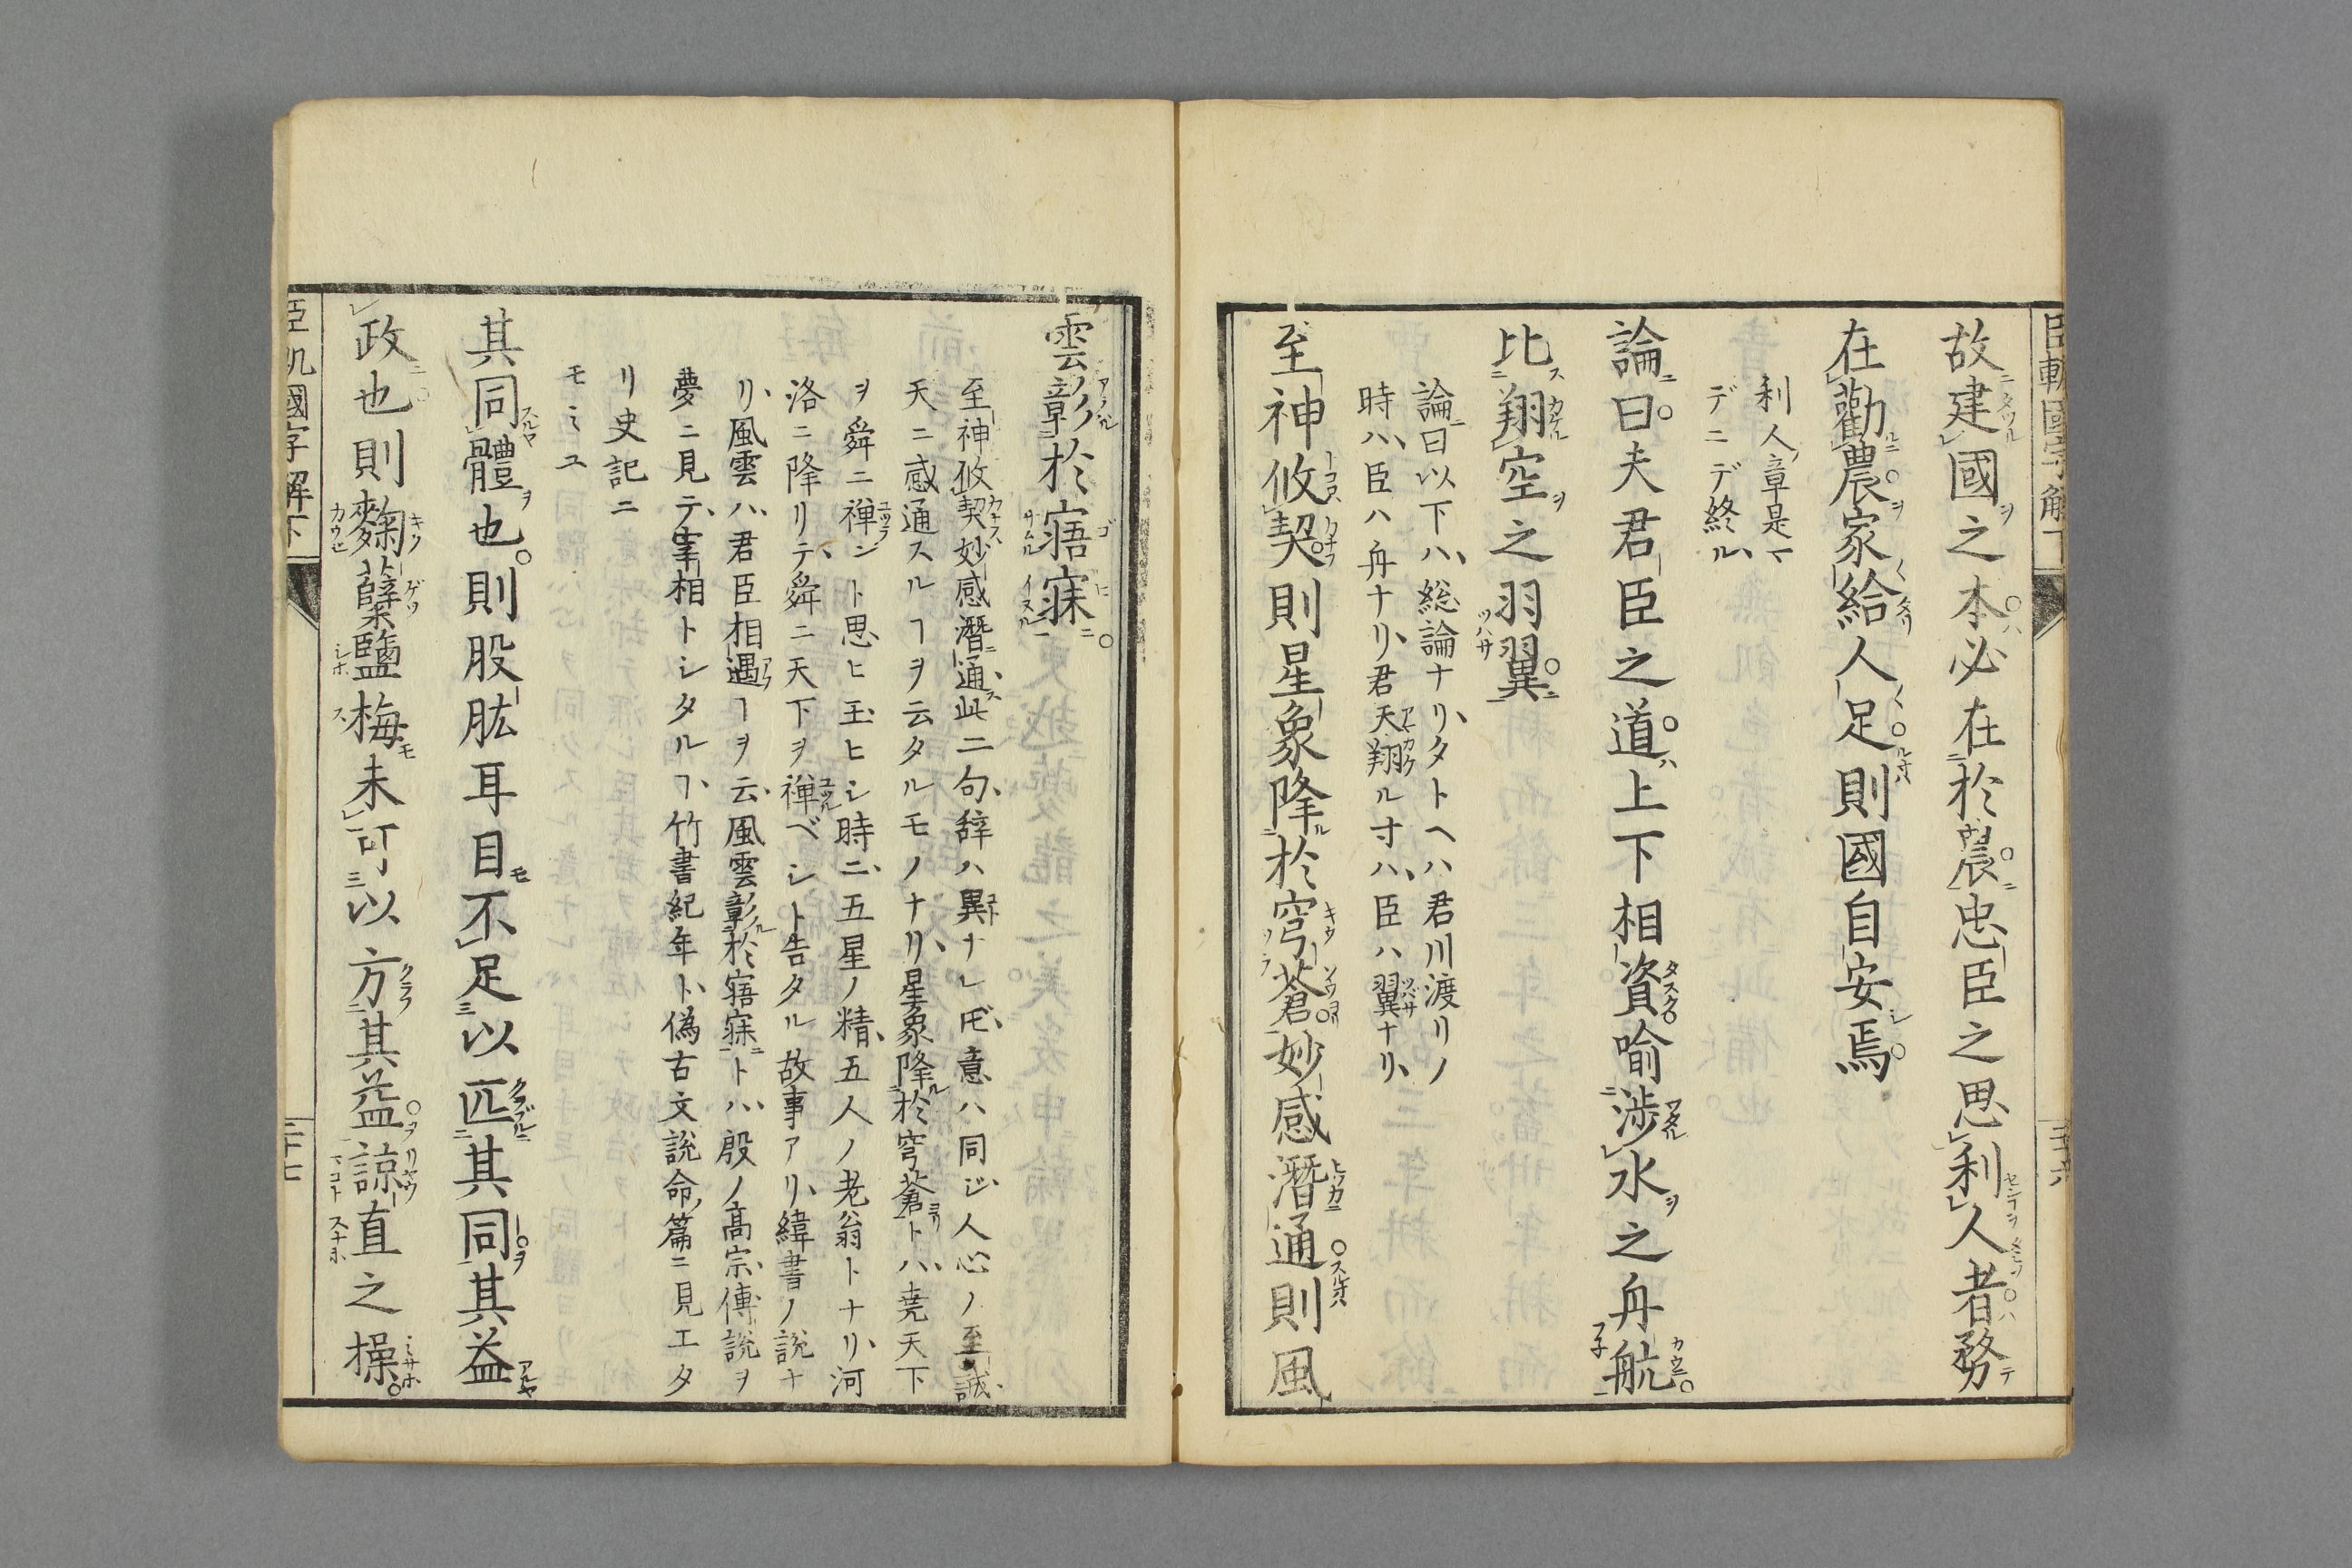 臣軌國字解下
故建國之本必在於農忠臣之思利人者務
在勸農家給人足則國自安焉
利人章是マ
デニデ終ル
論曰夫君臣之道上下相資喻涉水之舟航
比翔空之羽翼
論曰以下ハ総論ナリタトヘハ君川渡リノ
時ハ臣ハ舟ナリ君天翔ル寸ハ臣ハ翼ナリ
至神攸契則星象降於穹蒼妙感潛通則風
雲彰於寤寐
至神攸契妙感潛通此二句辞ハ異ナレ𪜈意ハ同ジ人心ノ至誠
天ニ感通スルヿヲ云タルモノナリ星象降於穹蒼トハ堯天下
ヲ舜ニ禅ント思ヒ玉ヒシ時ニ五星ノ精五人ノ老翁トナリ河
洛ニ降リテ舜ニ天下ヲ禅ベシト告タル故事アリ緯書ノ説ナ
リ風雲ハ君臣相遇ヿヲ云風雲彰於寤寐トハ殷ノ高宗傅説ヲ
夢ニ見テ宰相トシタルヿ竹書紀年ト偽古文説命篇ニ見エタ
リ史記ニ
モミユ
其同體也則股肱耳目不足以匹其同其益
政也則麴糵鹽梅未可以方其益諒直之操
臣軌國字解下
三十七